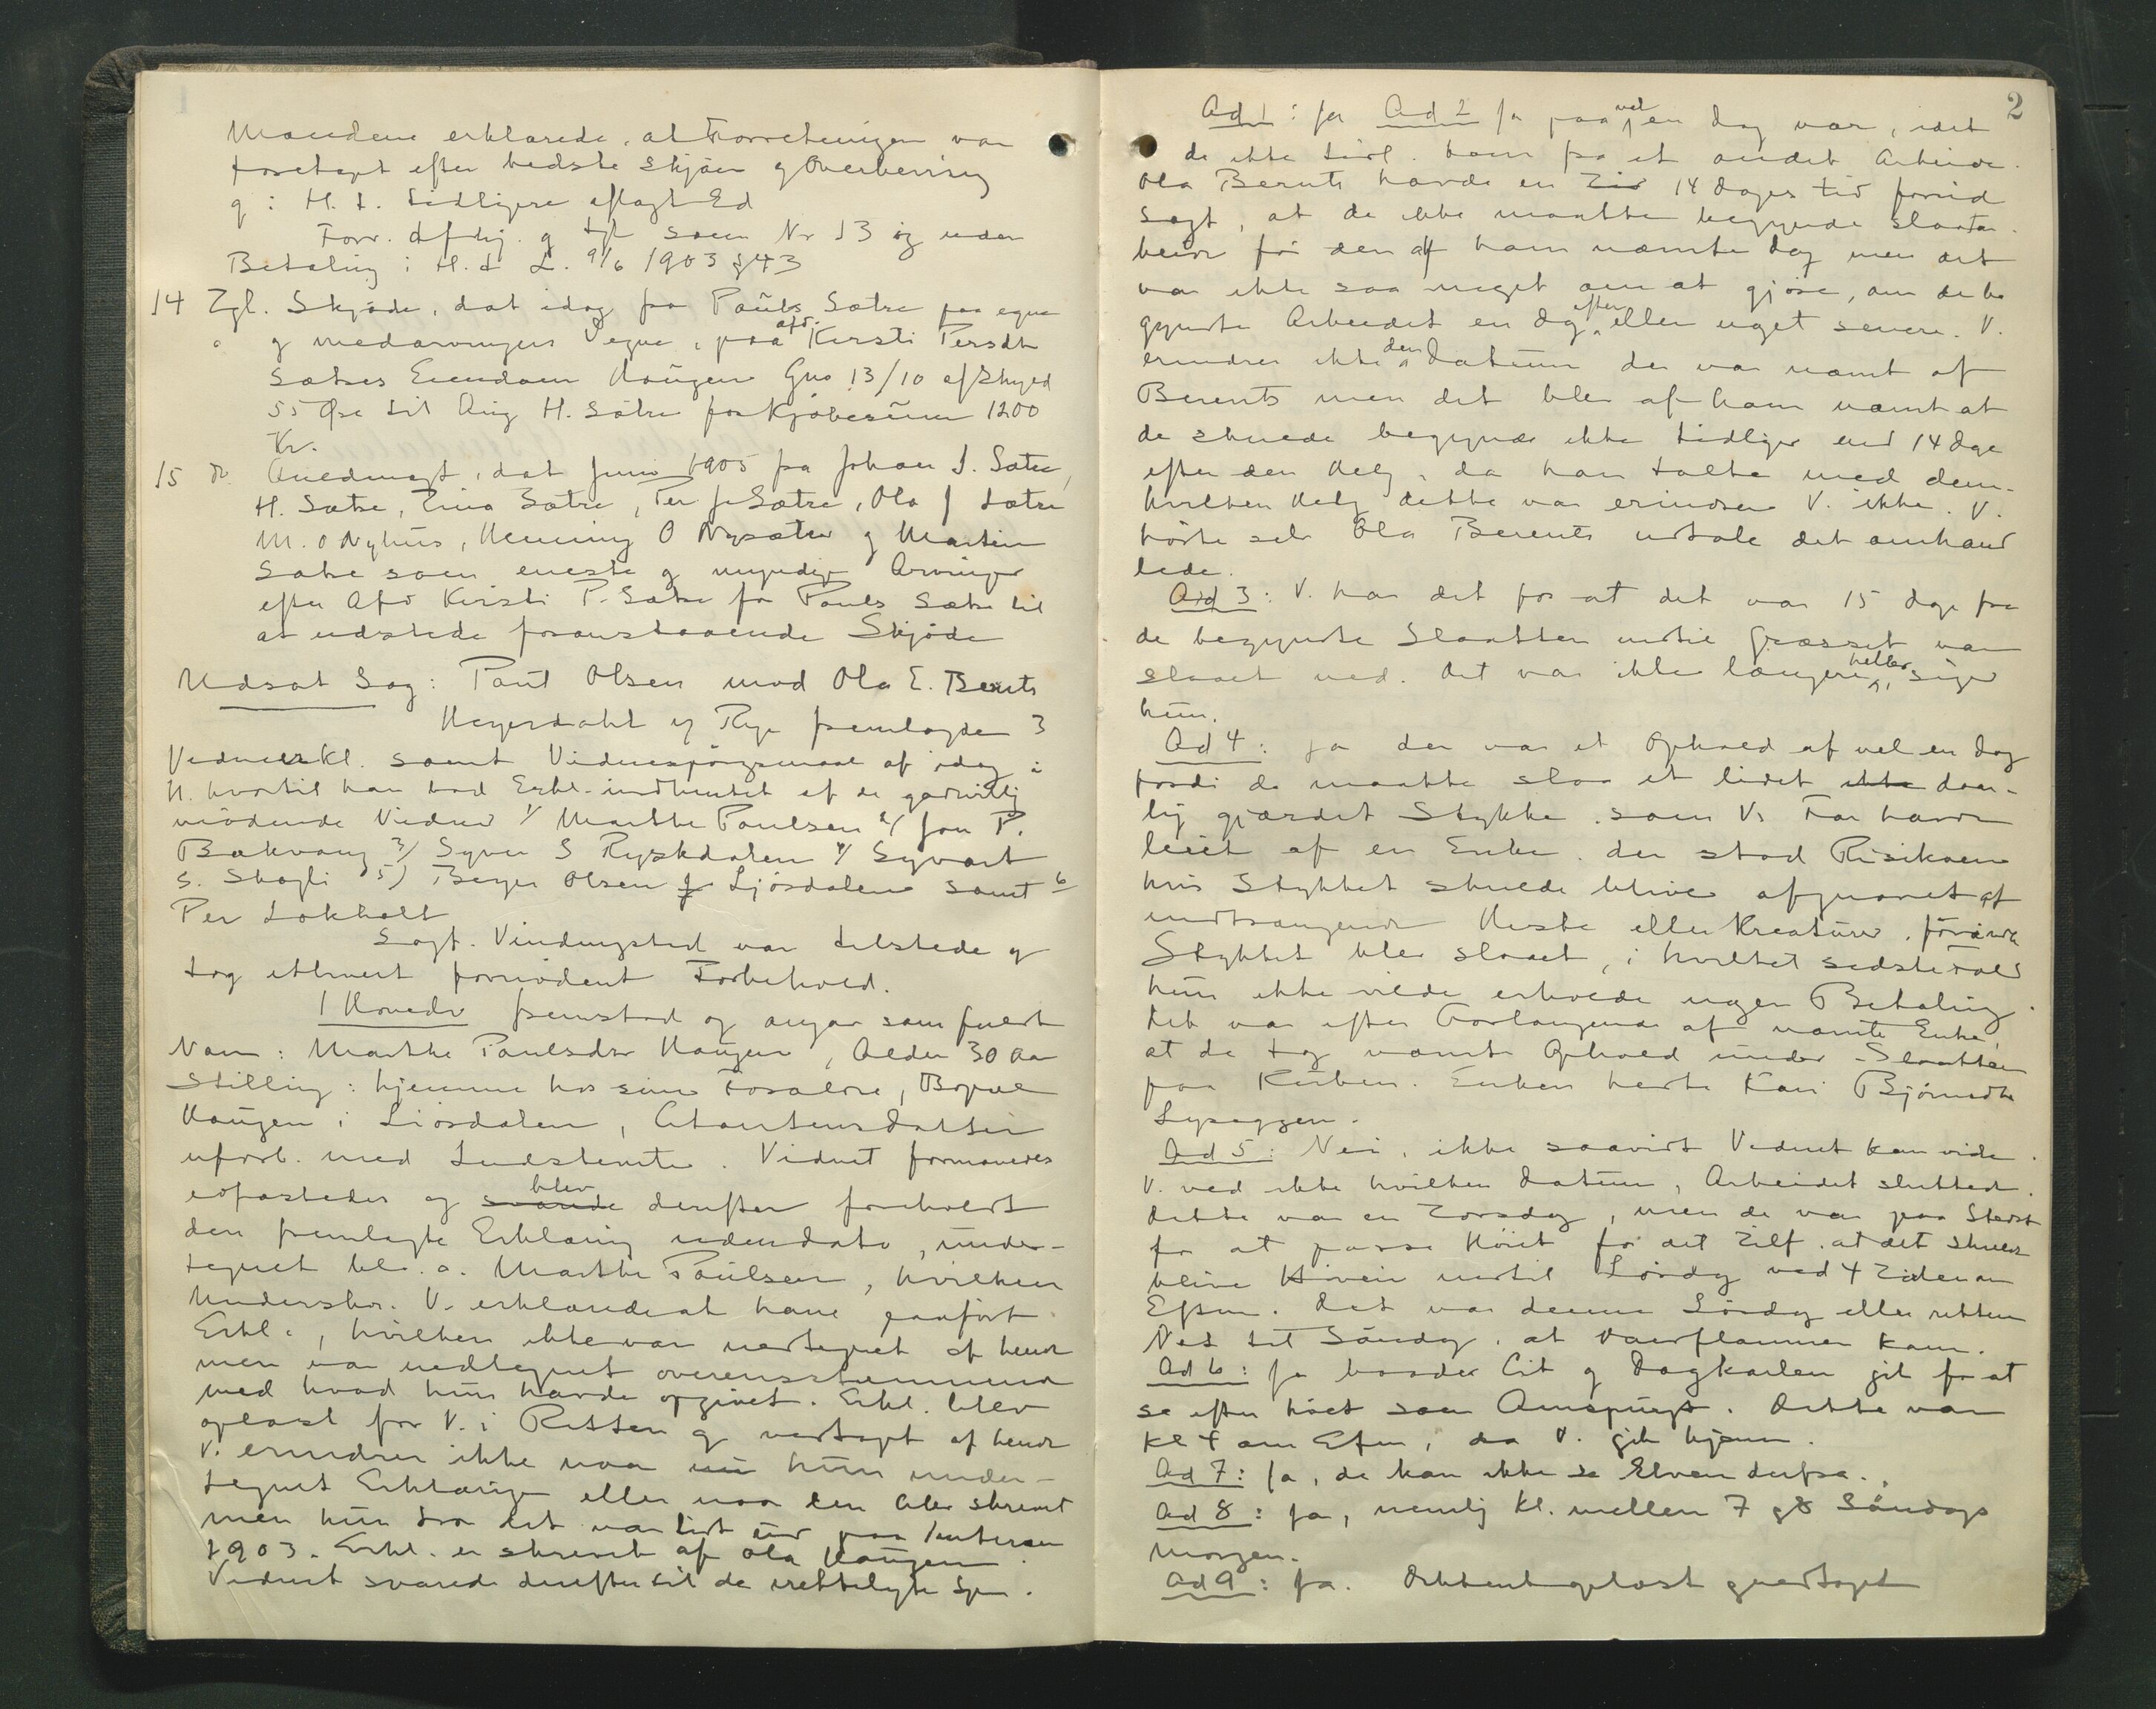 Mændene erklærede, at Forretningen var
foretaget efter bedste Skjøn og Overbevisning
g: H. t. tidligere aflagt Ed
Forr. afhj. g tgl som Nr 13 og uden
Betaling i H. t L. 9/6 1903 § 43
14 Tgl. Skjøde, dat idag fra Pauls Sætre paa egne
og medarvingers Vegne, paa afd. Kirsti Persdtr
Sætres Eiendom Haugen Gno 13/10 af Skyld
55 Øre til Aug H. Sætre for Kjøbesum 1200
Kr.
15 do. Fuldmagt, dat Juni 1905 fra Johan J. Sætre,
H. Sætre, Trina Sætre, Per J. Sætre, Ola J Sætre
M. O Nyhus, Henning O Nysætre og Martin
Sætre som eneste og myndige Arvinger
efter Afd Kirsti P. Sætre for Pauls Sætre til
at udstede foranstaaende Skjøde
Udsat Sag: Paul Olsen mod Ola E. Bernts
Heyerdahl og Rye fremlagde 3
Vidneerkl. samt Vidnespørgsmaal af idag i
H. hvortil han bad Erkl. indhentet af de godvillig
mødende Vidner 1/ Marthe Paulsen 2/ Jon P.
Bækvang 3/ Syver S Ryskdalen 4/ Syvert
S. Skogli 5) Berger Olsen Ljøsdalen samt 6
Per Løkholt
Sagf. Vindingstad var tilstede og
tog ethvert fornødent Forbehold.
1 Hovedv fremstod og angav som fuldt
Navn: Marthe Paulsdtr Haugen, Alder 30 Aar
Stilling: hjemme hos sine Forældre, Bopæl
Haugen i Liøsdalen, Citantens Datter
uforb. med Indstevnte. Vidnet formanedes
edfæstedes og svarede blev derefter foreholdt
den fremlagte Erklæring uden dato, under-
tegnet bl. a. Marthe Paulsen, hvilken
Underskr. V. erklærede at have paaført
Erkl., hvilken ikke var nedtegnet af hende
men var nedtegnet overensstemmende
med hvad hun havde opgivet. Erkl. blev
oplæst for V. i Retten og vedtaget af hende
V. erindrer ikke naar hun under-
tegnet Erklæringen eller naar den blev skrevet
men hun tror det var lidt ud paa Vinteren
1903. Erkl. er skrevet af Ola Haugen.
Vidnet svarede derefter til de irettelagte Spm.
2
Ad 1: Ja Ad 2 Ja paa vel en Dag nær, idet
de ikke tidl. kom fra et andet Arbeide.
Ola Bernts havde en Tid 14 Dages tid forud
sagt, at de ikke maatte begynde Slaattar-
beide før den af ham nævnte Dag men det
var ikke saa meget om at gjøre, om de be
gyndte Arbeidet en Dag efter eller noget senere. V.
erindrer ikke den Datum der var nævnt af
Berents men det blev af ham nævnt at
de skulde begynde ikke tidliger end 14 Dage
efter den Helg, da han talte med dem.
hvilken Helg dette var erindrer V. ikke. V.
hørte selv Ola Berents udtale det omhand
lede.
Ad 3: V. har det for at det var 15 Dage fra
de begyndte Slaatten indtil Græsset var
slaaet ned. Det var ikke længere heller, siger
hun.
Ad 4: Ja der var et Ophold af vel en Dag
fordi de maatte slaa et lidet ikke daar-
lig gjærdet Stykke, som V's Far havde
leiet af en Enke, der stod Risikoen
hvis Stykket skulde blive afgnavet af
indtrængende Heste eller Kreaturer, førend
Stykket blev slaaet, i hvilket sidste Fald
hun ikke vilde erholde nogen Betaling.
Det var efter Forlangende af nævnte Enke,
at de tog nævnte Ophold under Slaatten
paa Kurben. Enken hedte Kari Bjørnsdtr
Lyseggen.
Ad 5: Nei, ikke saavidt Vidnet kan vide.
V. ved ikke hvilken Datum, Arbeidet sluttet.
Dette var en Torsdag, men de var paa Stedet
for at passe Høiet for det Tilf. at det skulde
blive Uveir indtil Lørdag ved 4 Tiden om
Efterm. Det var denne Lørdag eller rettere
Nat til Søndag, at Vaarflommen kom.
Ad 6: Ja baade Cit og Dagkarlen gik for at
se efter høet som Omspurgt. Dette var
Kl 4 om Efm, da V. gik hjem.
Ad 7: Ja, de kan ikke se Elven derfra.
Ad 8: Ja, nemlig Kl. mellem 7 g 8 Søndags
Morgen.
Ad 9: Ja. Dikteret oplæst g vedtaget